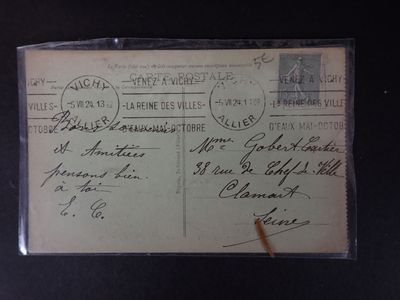 5€
CARTE POSTALE
VICHY
-5 VII 24.13
ALLIER
VENEZ A VICHY
-LA REINE DES VILLES-
D'EAUX-MAI-OCTOBRE
VICHY
-5 VII 24.1
ALLIER
VENEZ A VICHY
-LA REINE DES VILLES
D'EAUX-MAI-OCTOBRE
VILLES-
OCTOBRE
et Amitiées
pensons bien
à toi
E. C.
Mme Gobert
38 rue de Chef de Ville
Clamart
Seine